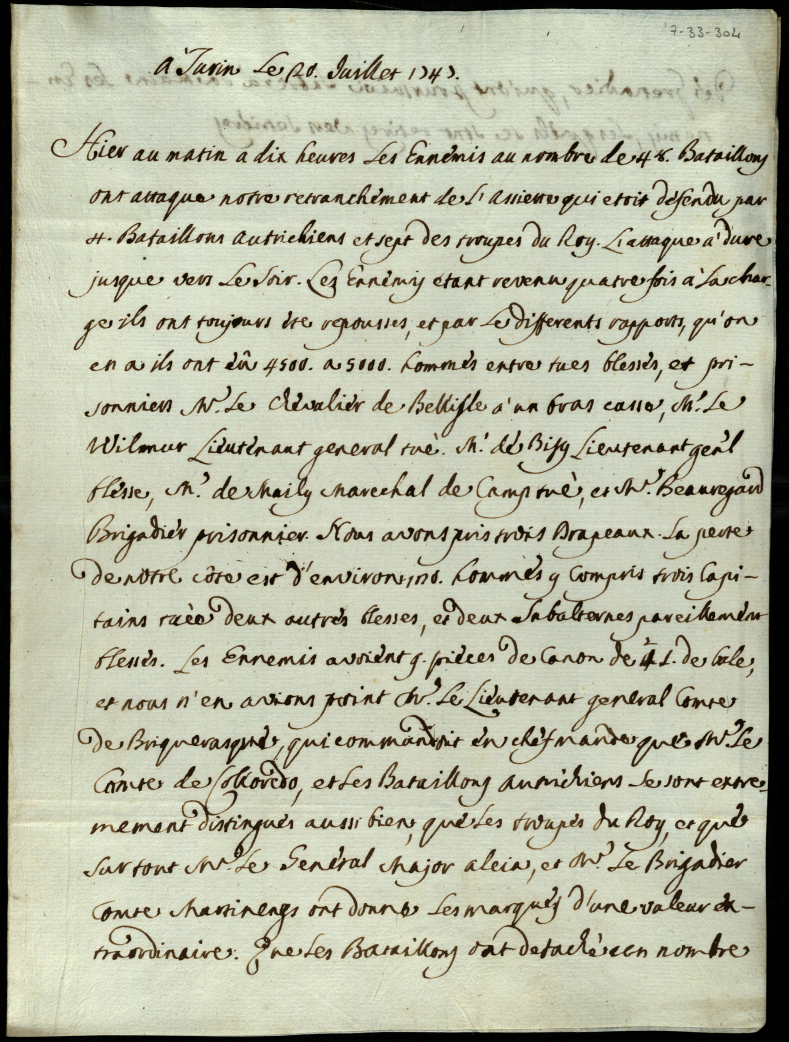 7-33-304
A' Turin Le 20. Juillet 1747.
Hier au matin a dix heures Les Ennémis au nombre de 48. Bataillons
ont attaque notre retranchément de L'Assiette qui etoit défendu par
4. Bataillons Autrichiens et sept des troupes du Roy. L'attaque a' duré
jusque vers Le Soir. Les Énnémis etant revenu quatre fois a' La char-
ge ils ont toujours été repousses, et par Le differents rapports, qu'on
en a ils ont éû 4500. a 5000. hommés entre tues blessés, et pri-
sonniers Mr. Le Chévaliér de Bellisle a' un bras cassé, Mr. Le
Wilmur Liéuténant general tué. Mr. dé Bissy Lieutenant genl
blésse, Mr. de Maily Marechal de Camp tué, et Mr. Beauregard
Brigadiér prisonnier. Nous avons pris trois Drapeaux. La perte
de nôtré côté est d'environ 170. hommés y Compris trois Capi-
tains tuée deux autrés blesses, et deux Subalternes pareillemént
blessés. Les Ennemis avoiént 9. piéces de Canon de 4 L. de bale,
et nous n'en avions point Mr. Le Liéutenant general Comte
de Briquerasqué, qui commandoit én chéf mande qué Mr. Le
Comte de Colloredo, et Les Bataillons Autrichiens Se sont extre-
mement distingués aussi bien, qué Les troupés du Roy, et qué
Sur tout Mr. Le Genéral Major alcia, et Mr. Le Brigadier
Comte Martinengs ont donné Les marqués d'une valeur éx-
traordinaire. Que Les Bataillons ont detaché un nombre